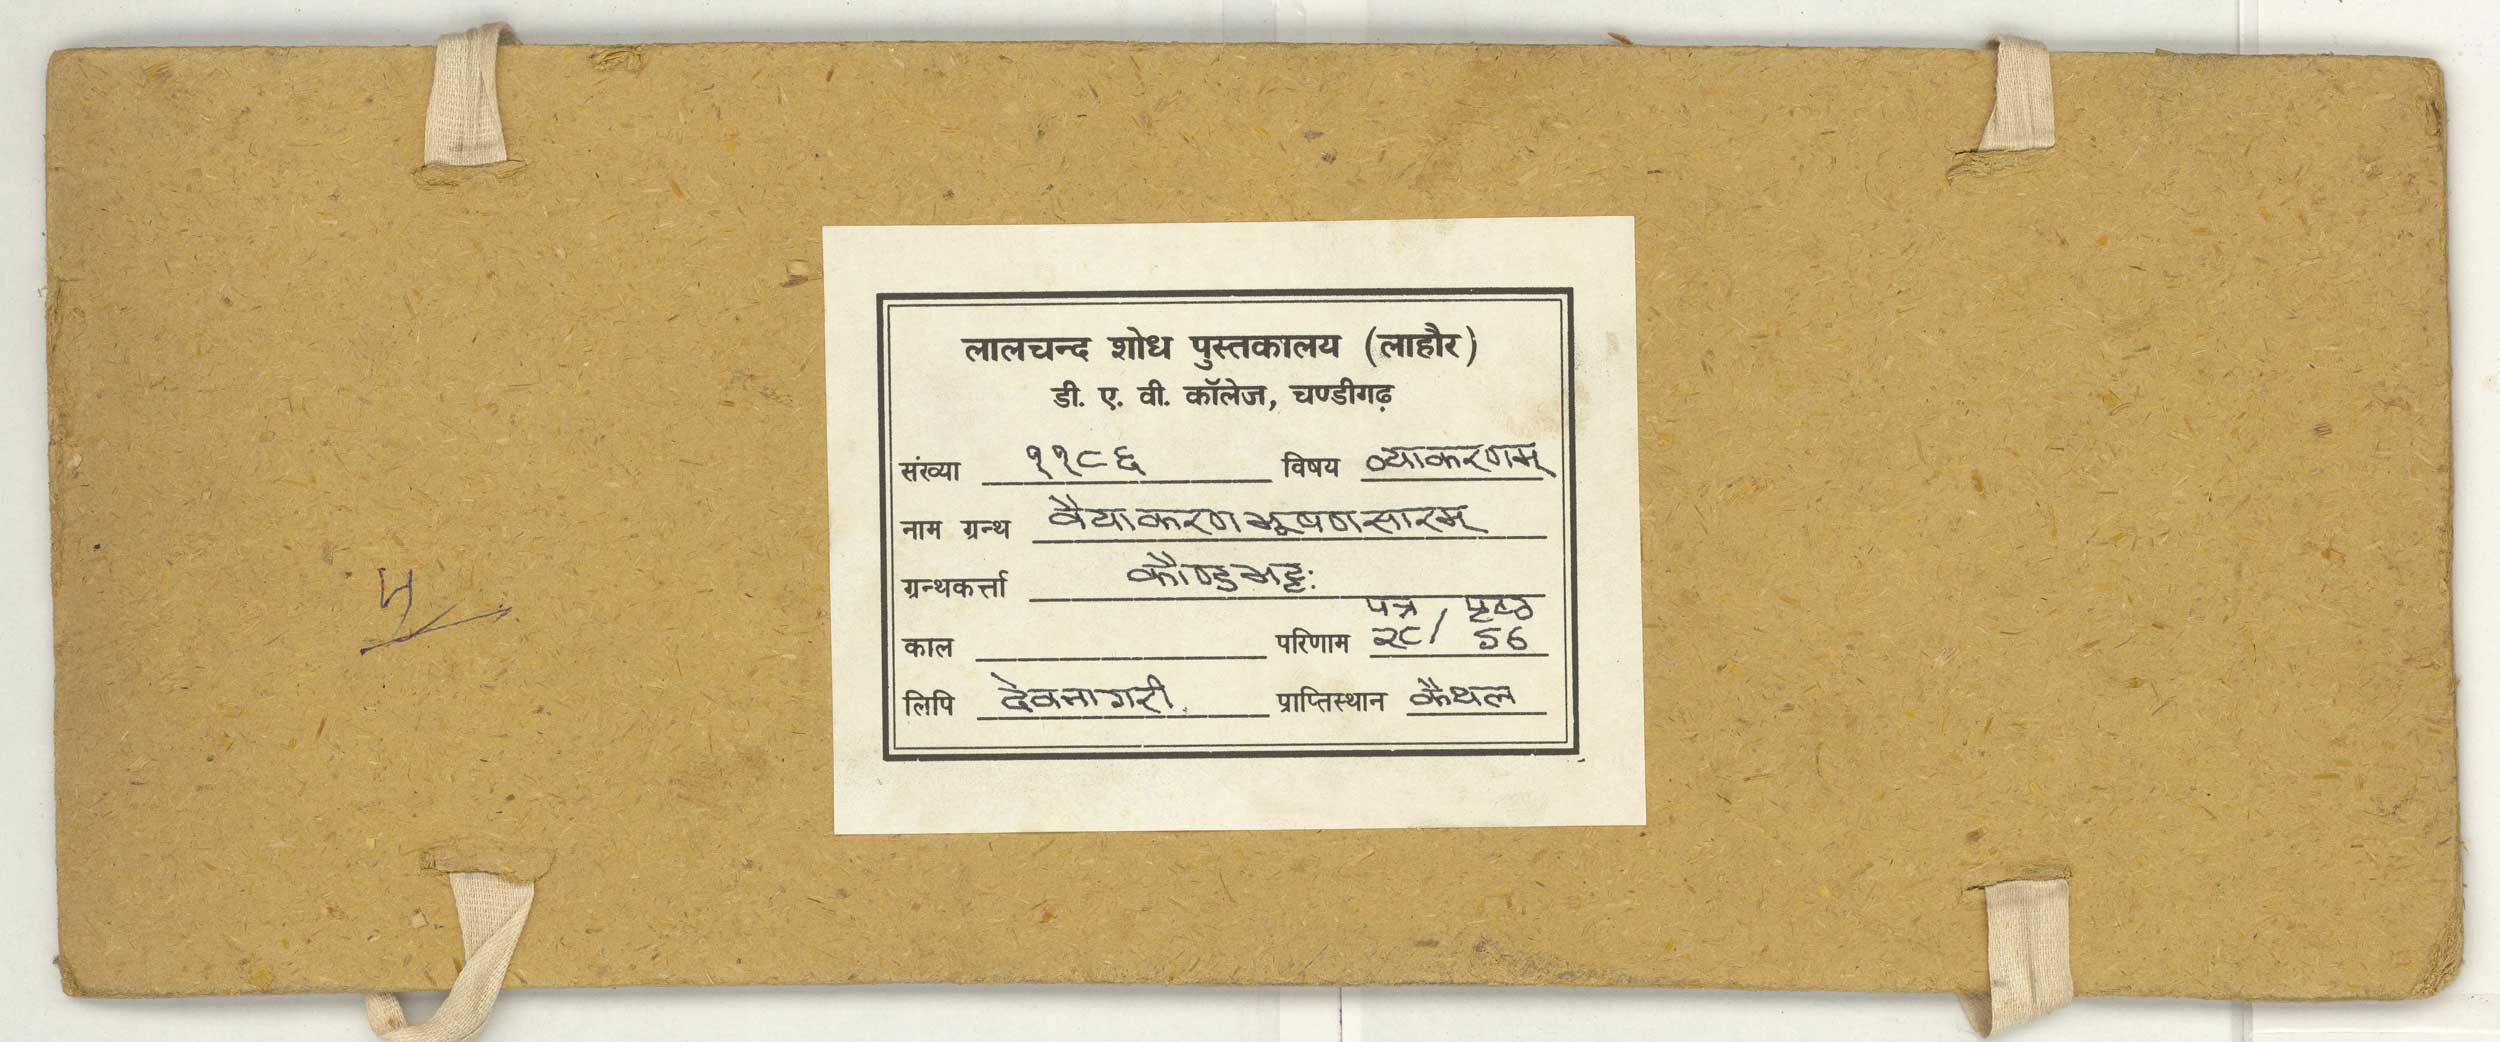 लालचन्द शोध पुस्तकालय (लाहौर)
डी. ए. वी. कॉलेज, चण्डीगढ़
संख्या ११८६ विषय व्याकरणम्
नाम ग्रन्थ वैयाकरणभूषणसारम्
ग्रन्थकर्त्ता कौण्डुभट्टः
पत्र / पृष्ठ
काल परिणाम २८/ 56
लिपि देवनागरी. प्राप्तिस्थान कैथल
५